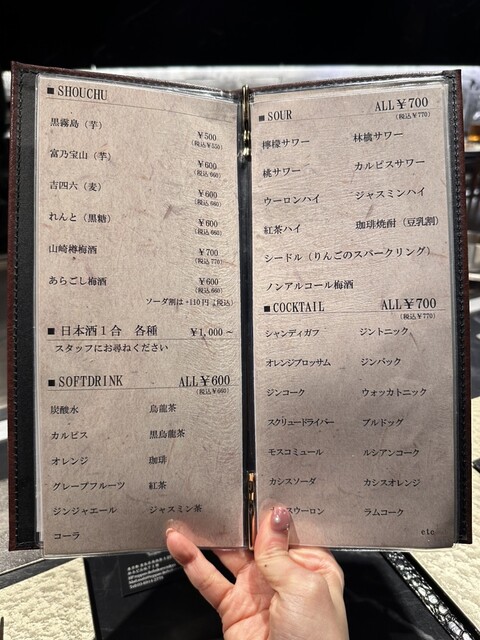 ■ SHOUCHU
黒霧島（芋） ¥500
(税込¥550)
富乃宝山（芋） ¥600
(税込660)
吉四六（麦） ¥600
(税込660)
れんと（黒糖） ¥600
(税込660)
山崎樽梅酒 ¥700
(税込770)
あらごし梅酒 ¥600
(税込660)
ソーダ割は+110円（税込）
■ 日本酒１合 各種 ¥1,000～
スタッフにお尋ねください
■ SOFTDRINK ALL¥600
(税込¥660)
炭酸水 烏龍茶
カルピス 黒烏龍茶
オレンジ 珈琲
グレープフルーツ 紅茶
ジンジャエール ジャスミン茶
コーラ
■ SOUR ALL¥700
(税込¥770)
檸檬サワー 林檎サワー
桃サワー カルピスサワー
ウーロンハイ ジャスミンハイ
紅茶ハイ 珈琲焼酎（豆乳割）
シードル（りんごのスパークリング）
ノンアルコール梅酒
■ COCKTAIL ALL¥700
(税込¥770)
シャンディガフ ジントニック
オレンジブロッサム ジンバック
ジンコーク ウォッカトニック
スクリュードライバー ブルドッグ
モスコミュール ルシアンコーク
カシスソーダ カシスオレンジ
スウーロン ラムコーク
etc